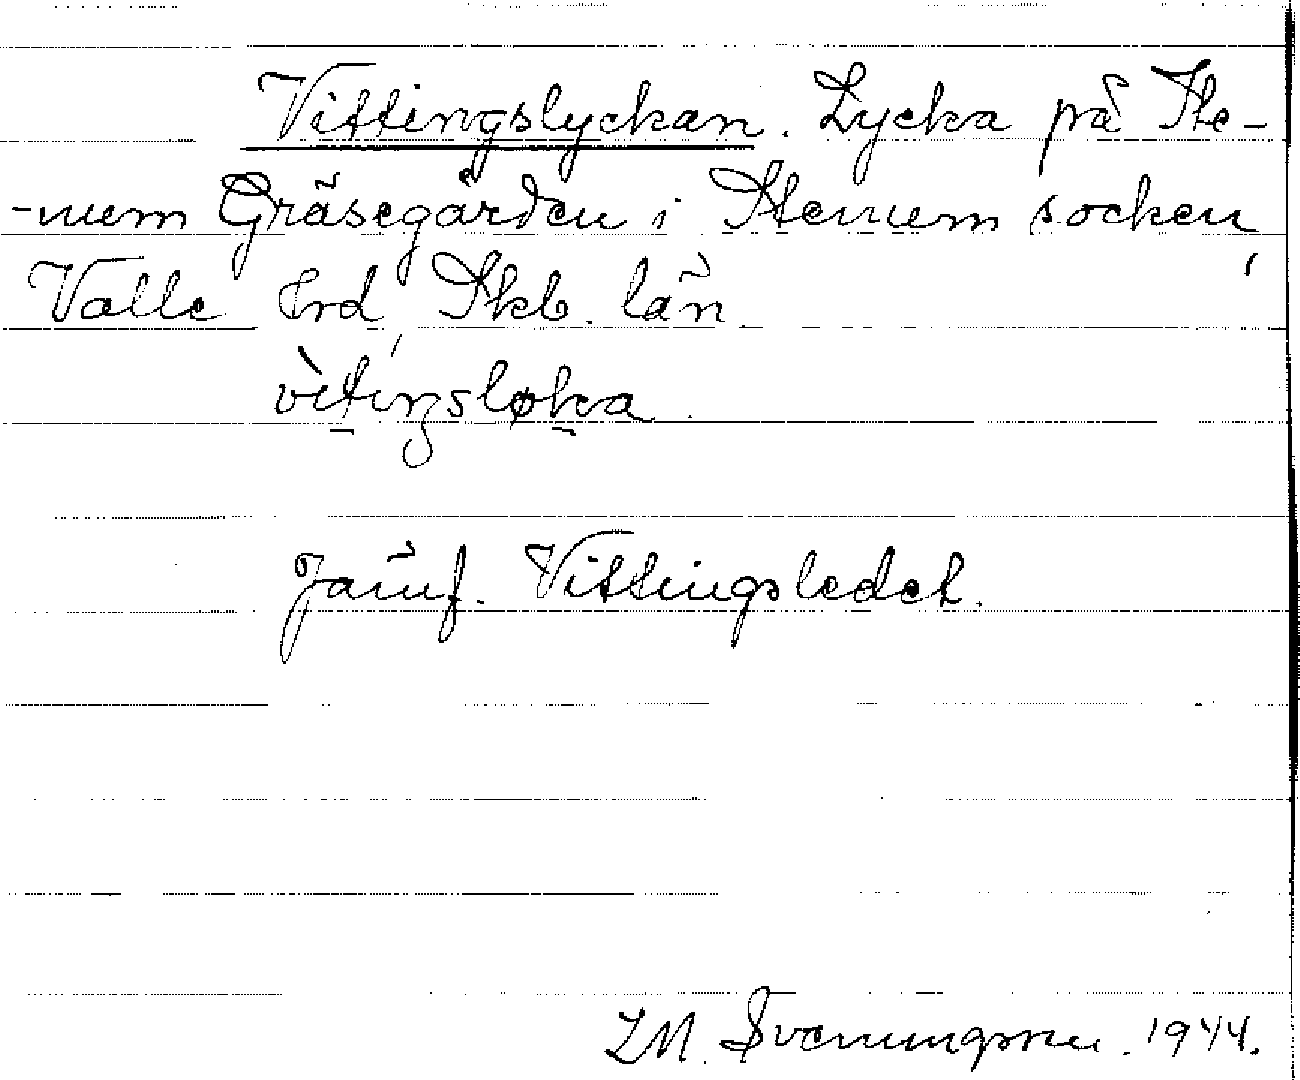 Vittingslyckan. Lycka på Ste-
-num Gräsegården i Stenum socken,
Valle hrd, Skb. län.
vìtiŋsløka.
Jämf. Vittingsledet.
LM. Svenungsson. 1944.